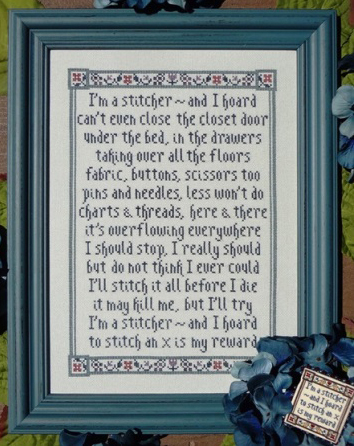 I'm a stitcher ~ and I hoard
can't even close the closet door
under the bed, in the drawers
taking over all the floors
fabric, buttons, scissors too
pins and needles, less won't do
charts & threads, here & there
it's overflowing everywhere
I should stop, I really should
but do not think I ever could
I'll stitch it all before I die
it may kill me, but I'll try
I'm a stitcher ~ and I hoard
to stitch an x is my reward
I'm a stitcher
~ and I hoard
to stitch an x
is my reward